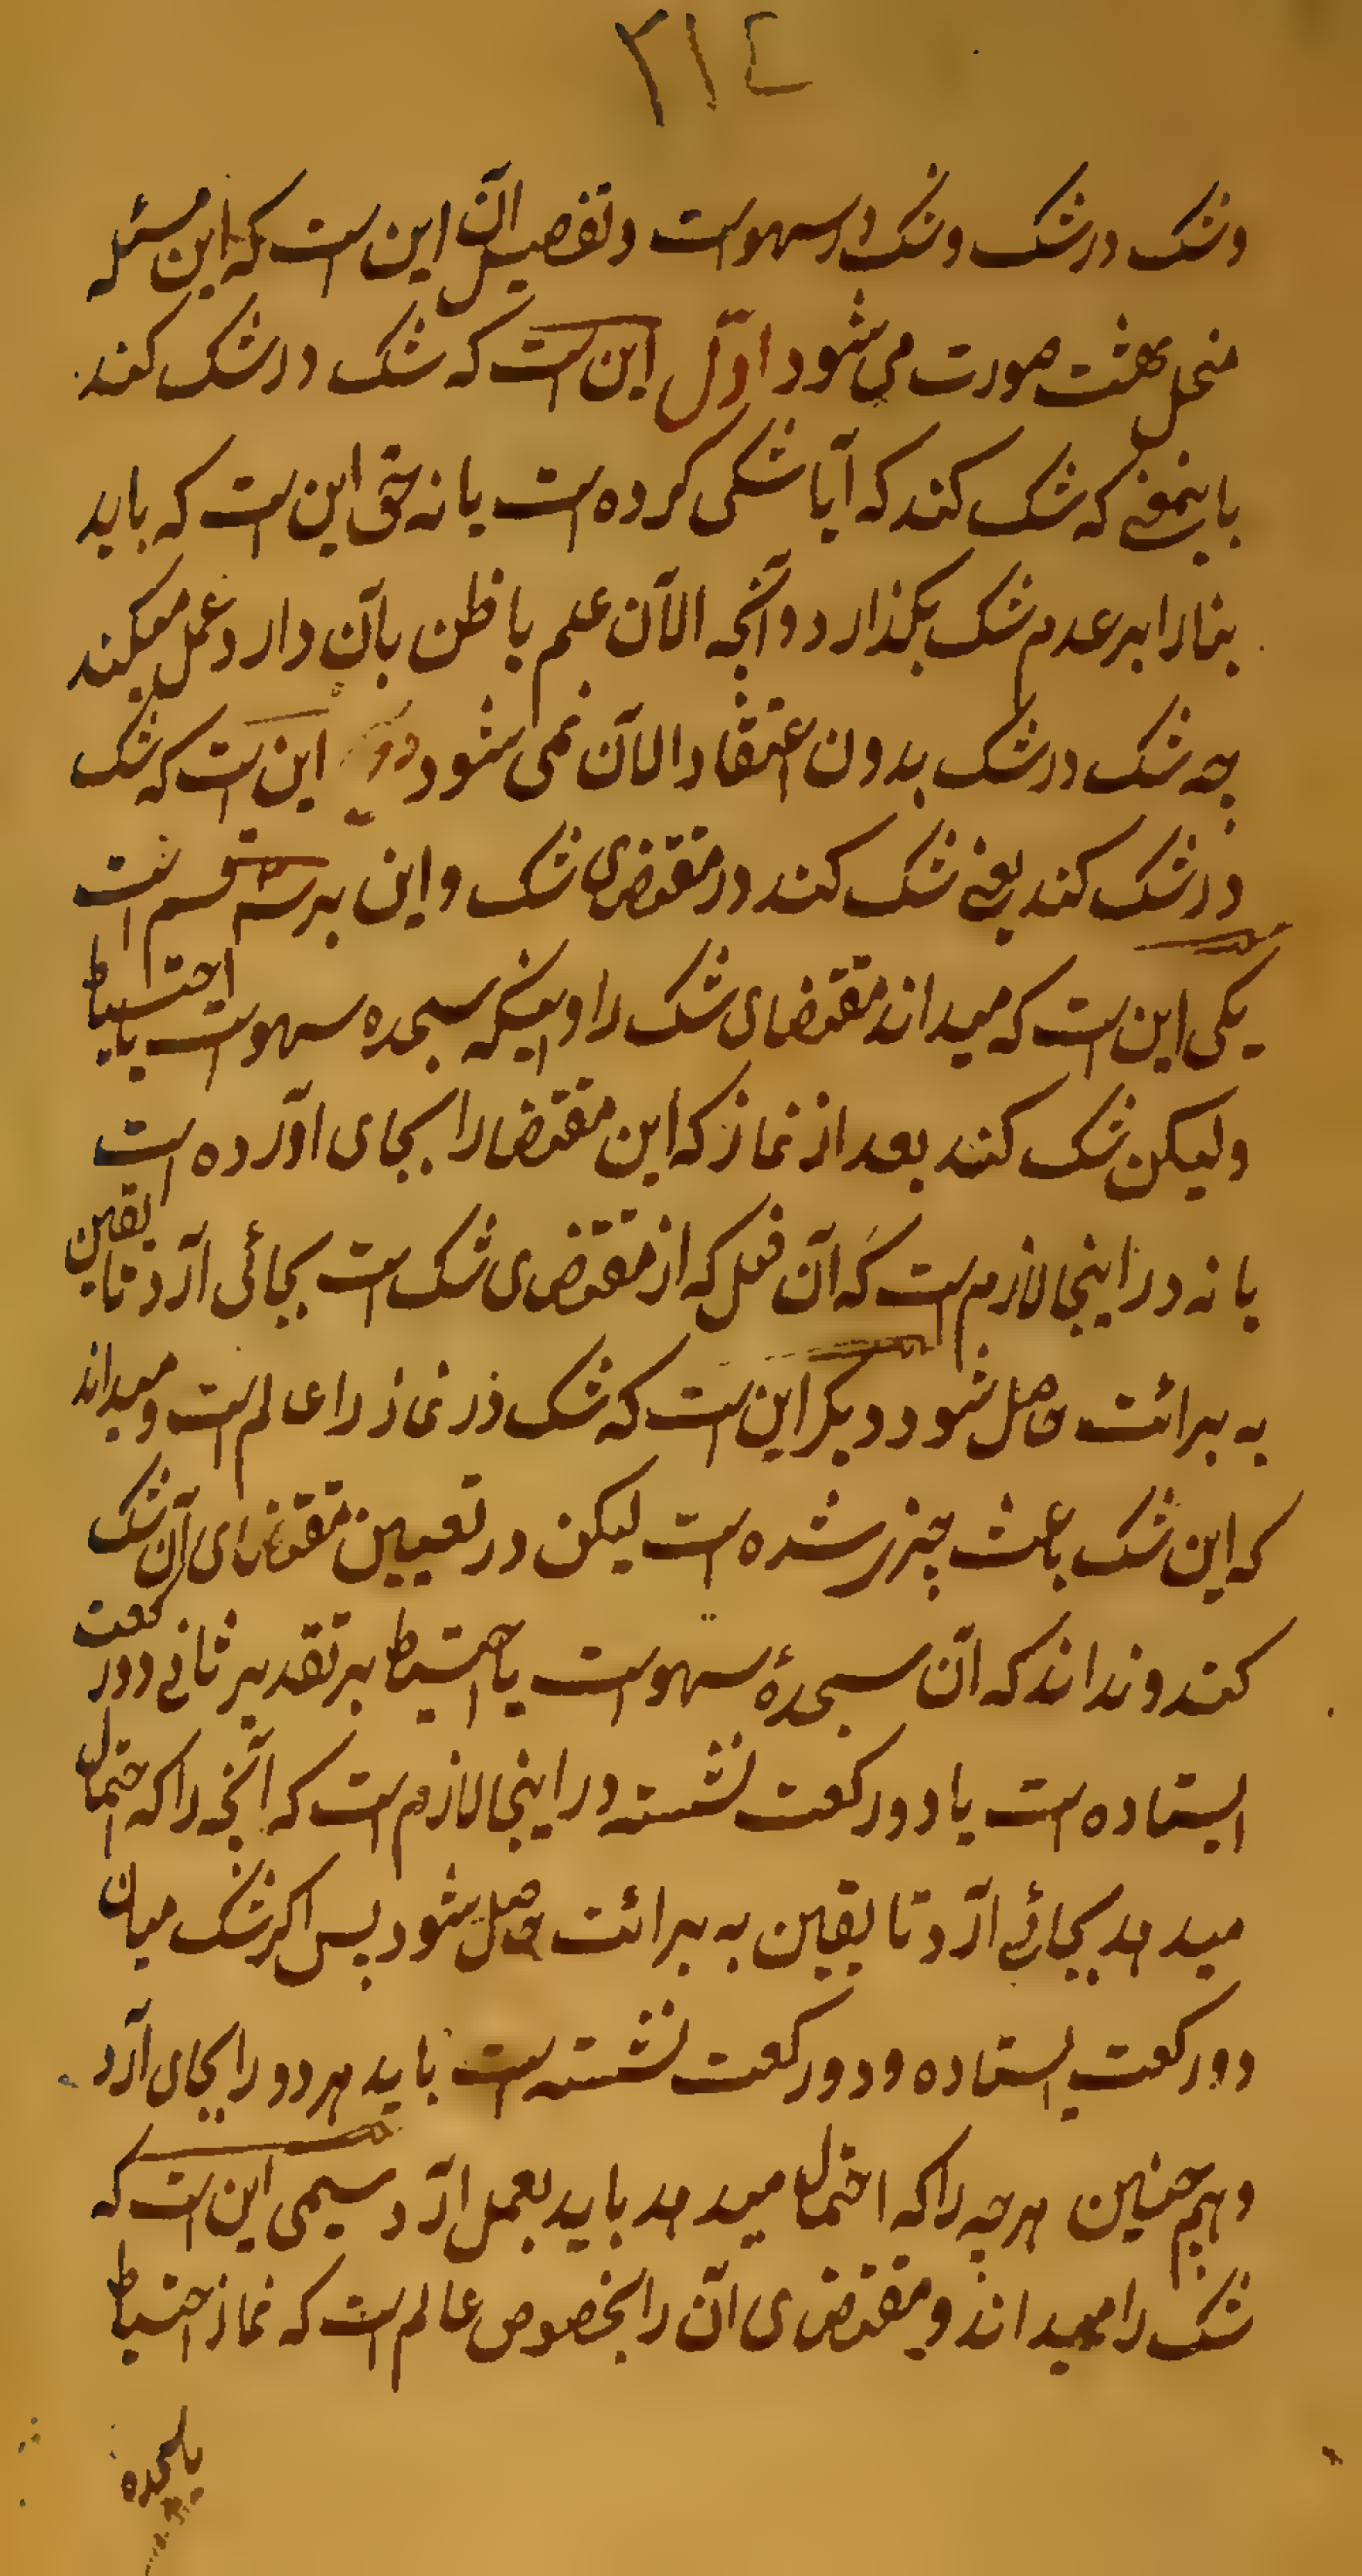 ۳۱٤
و شک در شک و شک در سهوست و تفصیل آن این ست که این مسئله
منحل بهشت صورت می شود اوّل این ست که شک در شک کند
باینمعنی که شک کند که آیا شکی کرده است یا نه حق این ست که باید
بنا را بر عدم شک بگذارد و آنچه الآن علم یا ظن بآن دارد عمل میکند
چه شک در شک بدون اعتقاد الآن نمی شود دوم این ست که شک
در شک کند یعنی شک کند در مقتضی شک و این بر سه قسم است
یکی این ست که میداند مقتضای شک را و اینکه سجده سهوست یا احتیاط
ولیکن شک کند بعد از نماز که این مقتضا را بجای آورده است
یا نه در اینجا لازم ست که آن فعل که از مقتضی شک ست بجائی آرد تا یقین
به برائت حاصل شود دیگر این ست که شک در نماز را عالم ست و میداند
که این شک باعث چیزی شده ست لیکن در تعیین مقتضای آن شک
کند و نداند که آن سجدهٔ سهوست یا احتیاط بر تقدیر ثانی دو رکعت
ایستاده ست یا دو رکعت نشسته در اینجا لازم ست که آنچه را که احتمال
میدهد بجائی آرد تا یقین به برائت حاصل شود پس اگر شک میان
دو رکعت ایستاده و دو رکعت نشسته ست باید هر دو را بجای آرد
و هم چنین هر چه را که احتمال میدهد باید بعمل آرد سیمی این ست که
شک را میداند و مقتضی آن را بخصوص عالم ست که نماز احتیاط
یا سجده